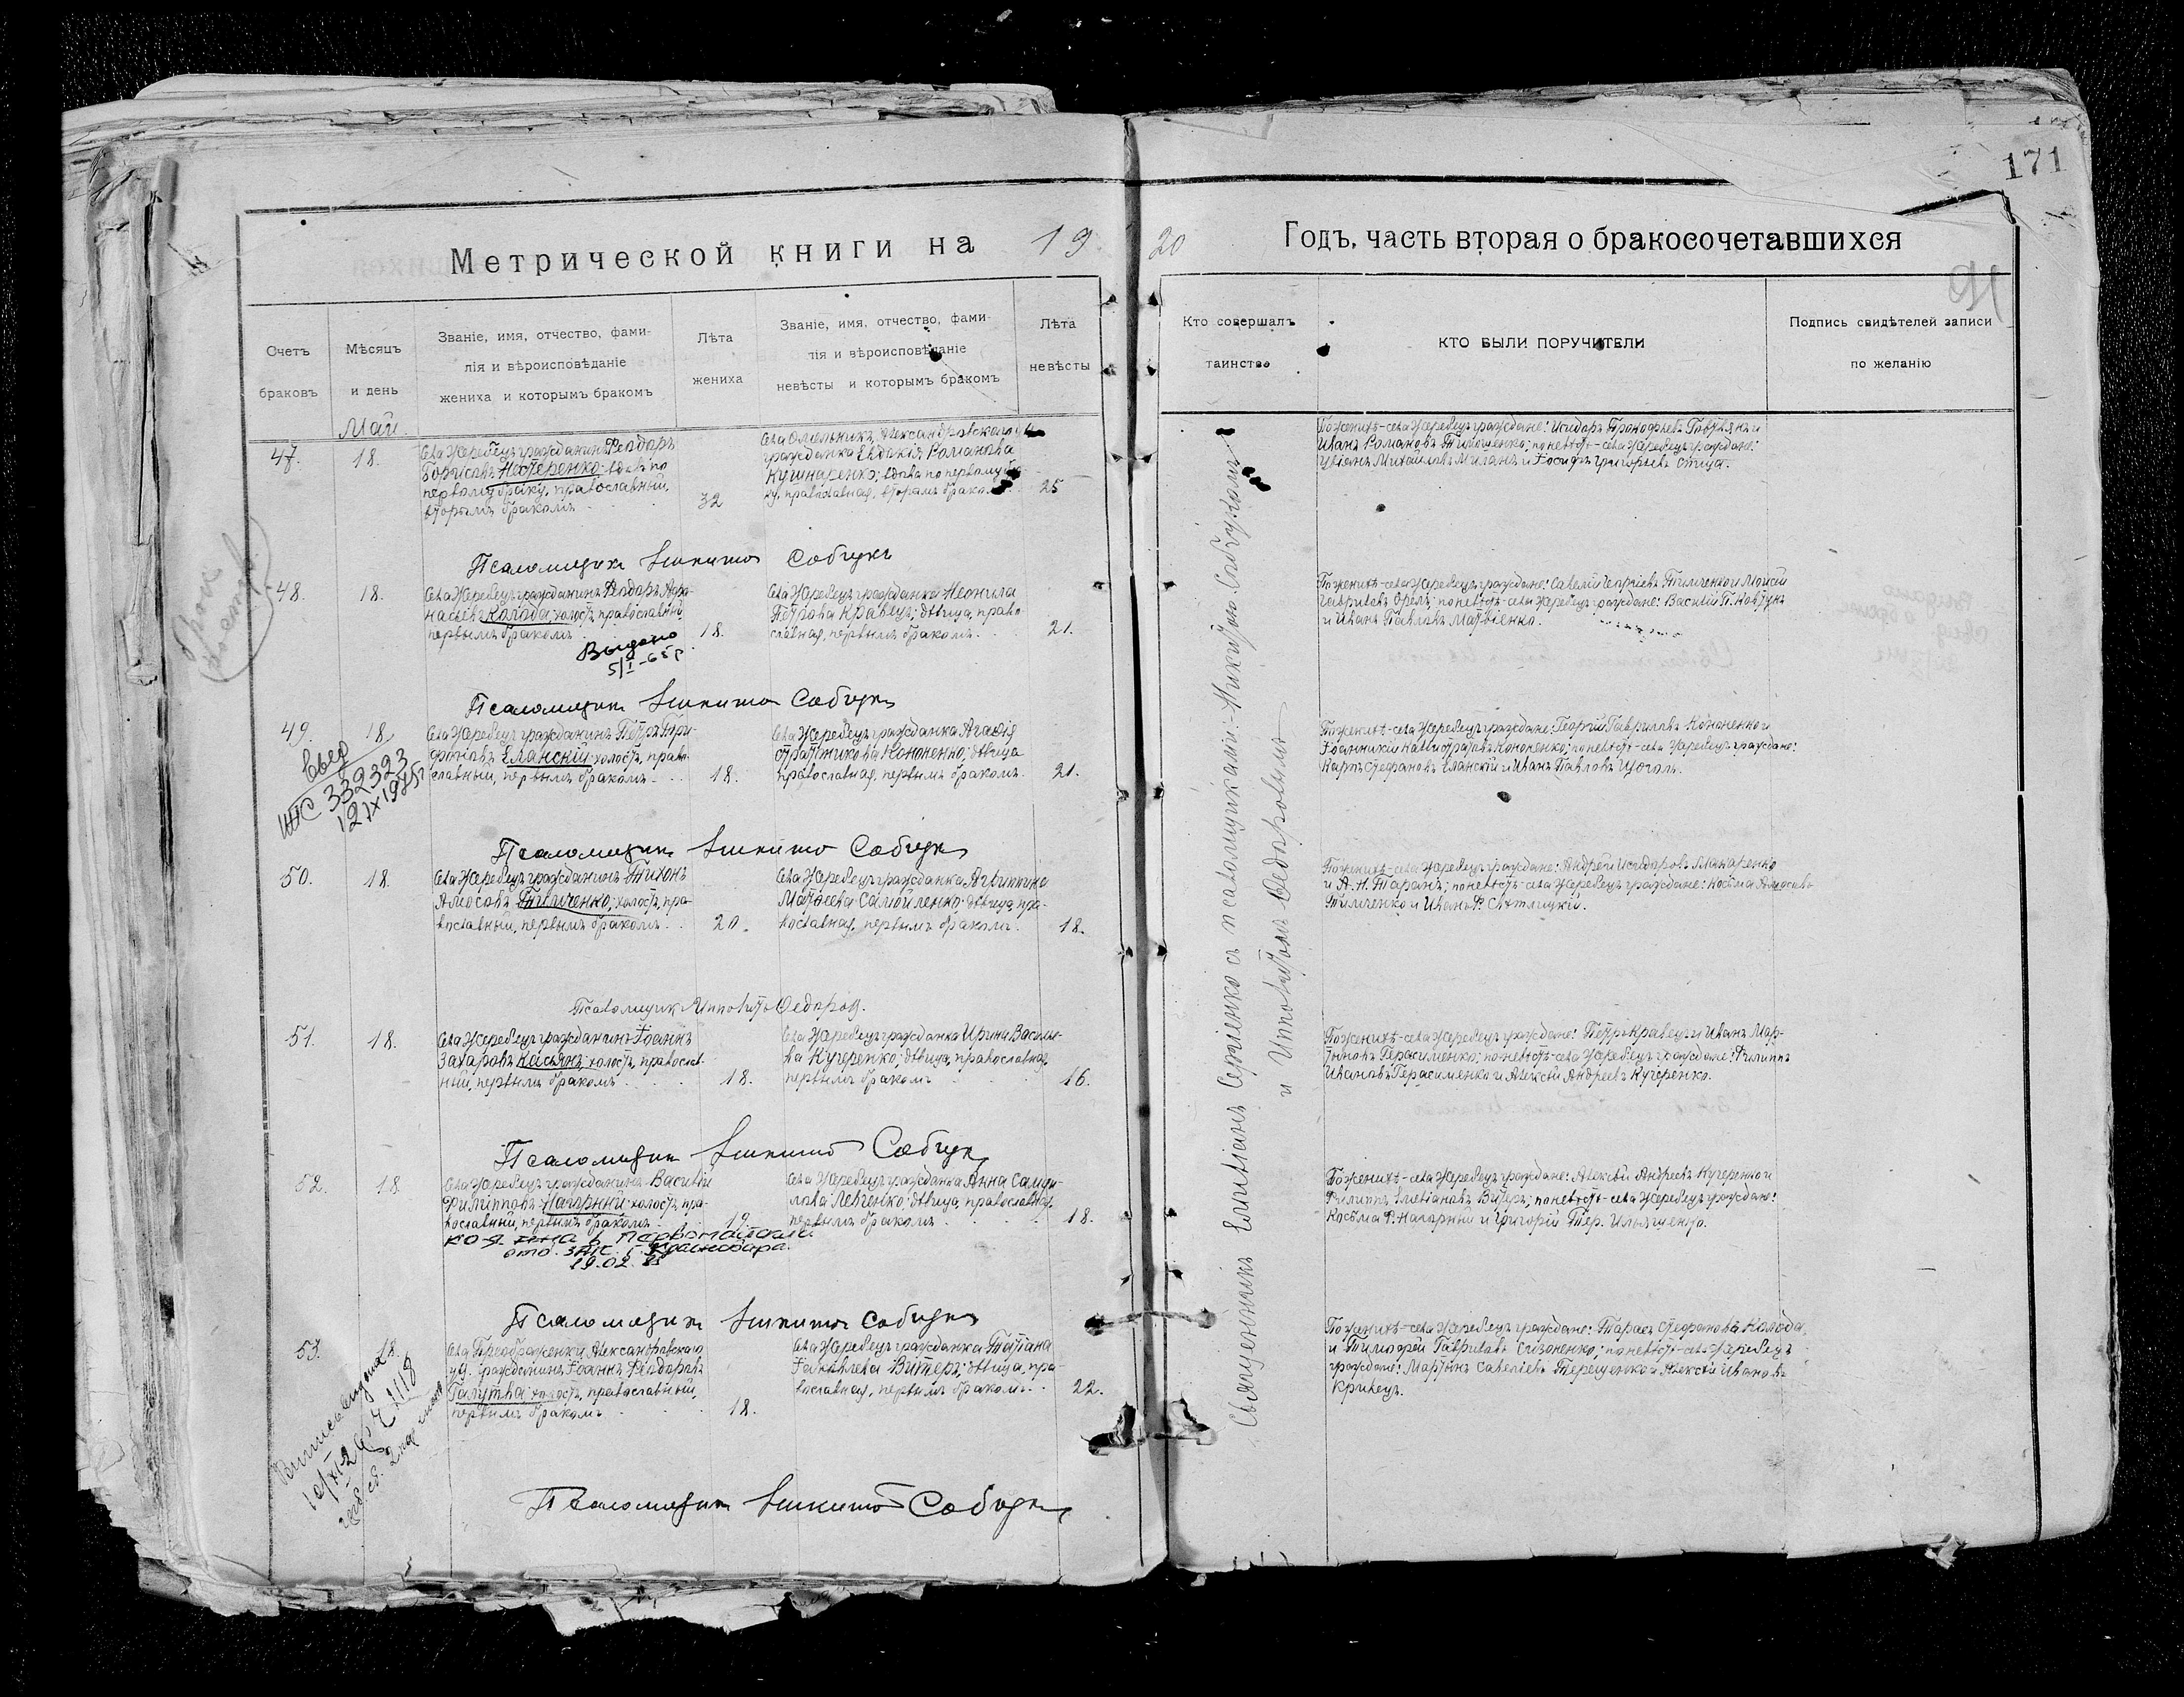 171
Метрической книги на 19
20 Годъ, часть вторая о бракосочетавшихся
Счетъ
браковъ
Мѣсяцъ
и день
Званіе, имя, отчество, фами-
лія и вѣроисповѣданіе
жениха и которымъ бракомъ
Лѣта
жениха
Званіе, имя, отчество, фами-
лія и вѣроисповѣданіе
невѣсты и которымъ бракомъ
Лѣта
невѣсты
Кто совершалъ
таинство
КТО БЫЛИ ПОРУЧИТЕЛИ
Подпись свидѣтелей записи
по желанію
Май
47.
18.
села Жеребецъ гражданинъ Феодоръ
Борисовъ Нестеренко, вдовъ по
первому браку, православный,
вторымъ бракомъ
32
села Омельникъ, Александровскаго у.
гражданка Евдокія Романова
Кушнаренко; вдова по первому бра-
ку, православная, вторымъ бракомъ.
25
По женихѣ - села Жеребецъ граждане: Исидоръ Прокофьевъ и
Иванъ Романовъ Тимошенко; по невѣстѣ - села Жеребецъ граждане:
Михайловъ Миланъ и Іосифъ Григорьевъ
Псаломщикъ Никита Собчукъ
48.
18.
села Жеребецъ гражданинъ Феодоръ Афа-
насьевъ Колода, холостъ, православный,
первымъ бракомъ
18.
села Жеребецъ гражданка Неонила
Петрова Кравецъ; дѣвица, право-
славная, первымъ бракомъ.
21.
По женихѣ - села Жеребецъ граждане: Савелій Тимченко и Моисей
Гавриловъ Орелъ; по невѣстѣ - села Жеребецъ граждане: Василій П. Ковтунъ
и Иванъ Павловъ Матвіенко.
Выдано
5/I-65г
Псаломщикъ Никита Собчукъ
49.
18.
села Жеребецъ гражданинъ Петръ Три-
фоновъ Еланскій, холостъ, право-
славный, первымъ бракомъ
18.
села Жеребецъ гражданка Агафія
Стратникова Кононенко; дѣвица
православная, первымъ бракомъ.
21.
По женихѣ - села Жеребецъ граждане: Георгій Гавриловъ Кононенко и
Іоанникій Кононенко; по невѣстѣ - села Жеребецъ граждане:
Карпъ Стефановъ Еланскій и Иванъ Павловъ Щоголь.
332323
Псаломщикъ Никита Собчукъ
50.
18.
села Жеребецъ гражданинъ Тихонъ
Амосовъ Тимченко, холостъ, пра-
вославный, первымъ бракомъ
20.
села Жеребецъ гражданка Агриппина
Матѳеева Самойленко; дѣвица, пра-
вославная, первымъ бракомъ.
18.
По женихѣ - села Жеребецъ граждане: Андрей Исидоровъ Макаренко
и А. Н. Таранъ; по невѣстѣ - села Жеребецъ граждане: Косьма Амосовъ
Тимченко и Иванъ Ѳ. Свѣтлицкій.
Псаломщикъ Ипполитъ Ѳедоровъ.
51.
18.
села Жеребецъ гражданинъ Іоаннъ
Захаровъ Касьянъ, холостъ, православ-
ный, первымъ бракомъ
18.
села Жеребецъ гражданка Ирина Василь-
ева Кучеренко; дѣвица, православная,
первымъ бракомъ
16.
По женихѣ - села Жеребецъ граждане: Петръ Кравецъ и Иванъ Мар-
тыновъ Герасименко; по невѣстѣ - села Жеребецъ граждане: Филиппъ
Ивановъ Герасименко и Алексѣй Андреевъ Кучеренко.
Псаломщикъ Никита Собчукъ
52.
18.
села Жеребецъ гражданинъ Василій
Филипповъ Нагорный, холостъ, пра-
вославный, первымъ бракомъ
19.
села Жеребецъ гражданка Анна Самуи-
лова Левченко; дѣвица, православная,
первымъ бракомъ
18.
По женихѣ - села Жеребецъ граждане: Алексѣй Андреевъ Кучеренко и
Филиппъ Витеръ; по невѣстѣ - села Жеребецъ граждане:
Косьма Ѳ. Нагорный и Григорій Тер. Ильяшенко.
Первомайский
отд. ЗАГС г. Краснодара
19.02.
Псаломщикъ Никита Собчукъ
53.
18.
села Преображенки Александровскаго
уѣ. гражданинъ Іоаннъ Феодоровъ
Галушка, холостъ, православный,
первымъ бракомъ
18.
села Жеребецъ гражданка Татіана
Іаковлева Витеръ; дѣвица, пра-
вославная, первымъ бракомъ.
22.
По женихѣ - села Жеребецъ граждане: Тарасъ Стефановъ Колода
и Тимоѳей Гавриловъ Сизоненко; по невѣстѣ - села Жеребецъ
граждане: Мартинъ Савеліевъ Терещенко и Алексѣй Ивановъ
Кравецъ.
Псаломщикъ Никита Собчукъ
Священникъ Емиліанъ Сергіенко съ псаломщиками: Никитою Собчукомъ
и Ипполитомъ Ѳедоровымъ